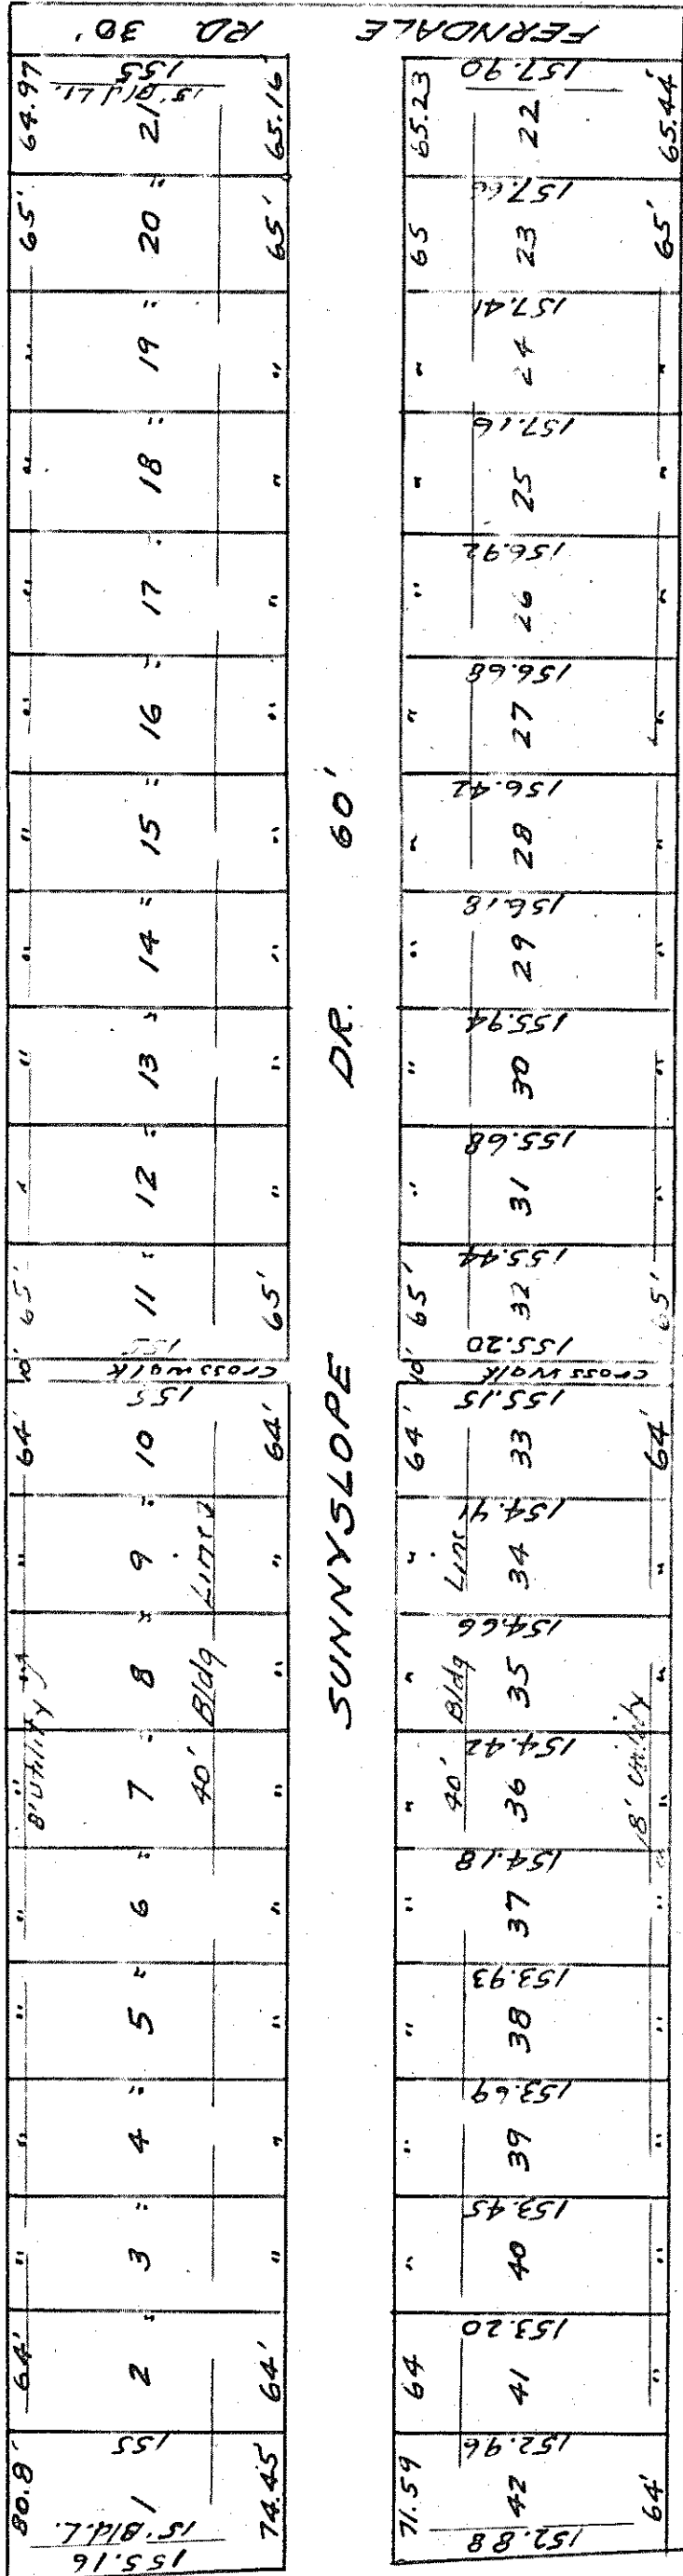 FERNDALE RD 30'
64.97 155 65.16'
15' Bld Li.
21
65' 20 " 65'
" 19 " "
" 18 " "
" 17 " "
" 16 " "
" 15 " "
" 14 " "
" 13 " "
" 12 " "
65' 11 " 65'
155
10' crosswalk
155
64' 10 64'
" 9 " "
" 8 " "
" 7 " "
8' Utility
40' Bldg Lines
" 6 " "
" 5 " "
" 4 " "
" 3 " "
64' 2 " 64'
155
80.8' 1 74.45'
15' Bld. L.
155.16
SUNNYSLOPE DR. 60'
157.90
65.23 22 65.44'
157.66
65 23 65'
157.41
" 24 "
157.16
" 25 "
156.92
" 26 "
156.68
" 27 "
156.42
" 28 "
156.18
" 29 "
155.94
" 30 "
155.68
" 31 "
155.44
65' 32 65'
155.20
10' crosswalk
155.15
64' 33 64'
154.91
" 34 "
154.66
" 35 "
154.42
" 36 "
40' Bldg Line
8' Utility
154.18
" 37 "
153.93
" 38 "
153.69
" 39 "
153.45
" 40 "
153.20
64 41 "
152.96
71.59 42 64'
152.88